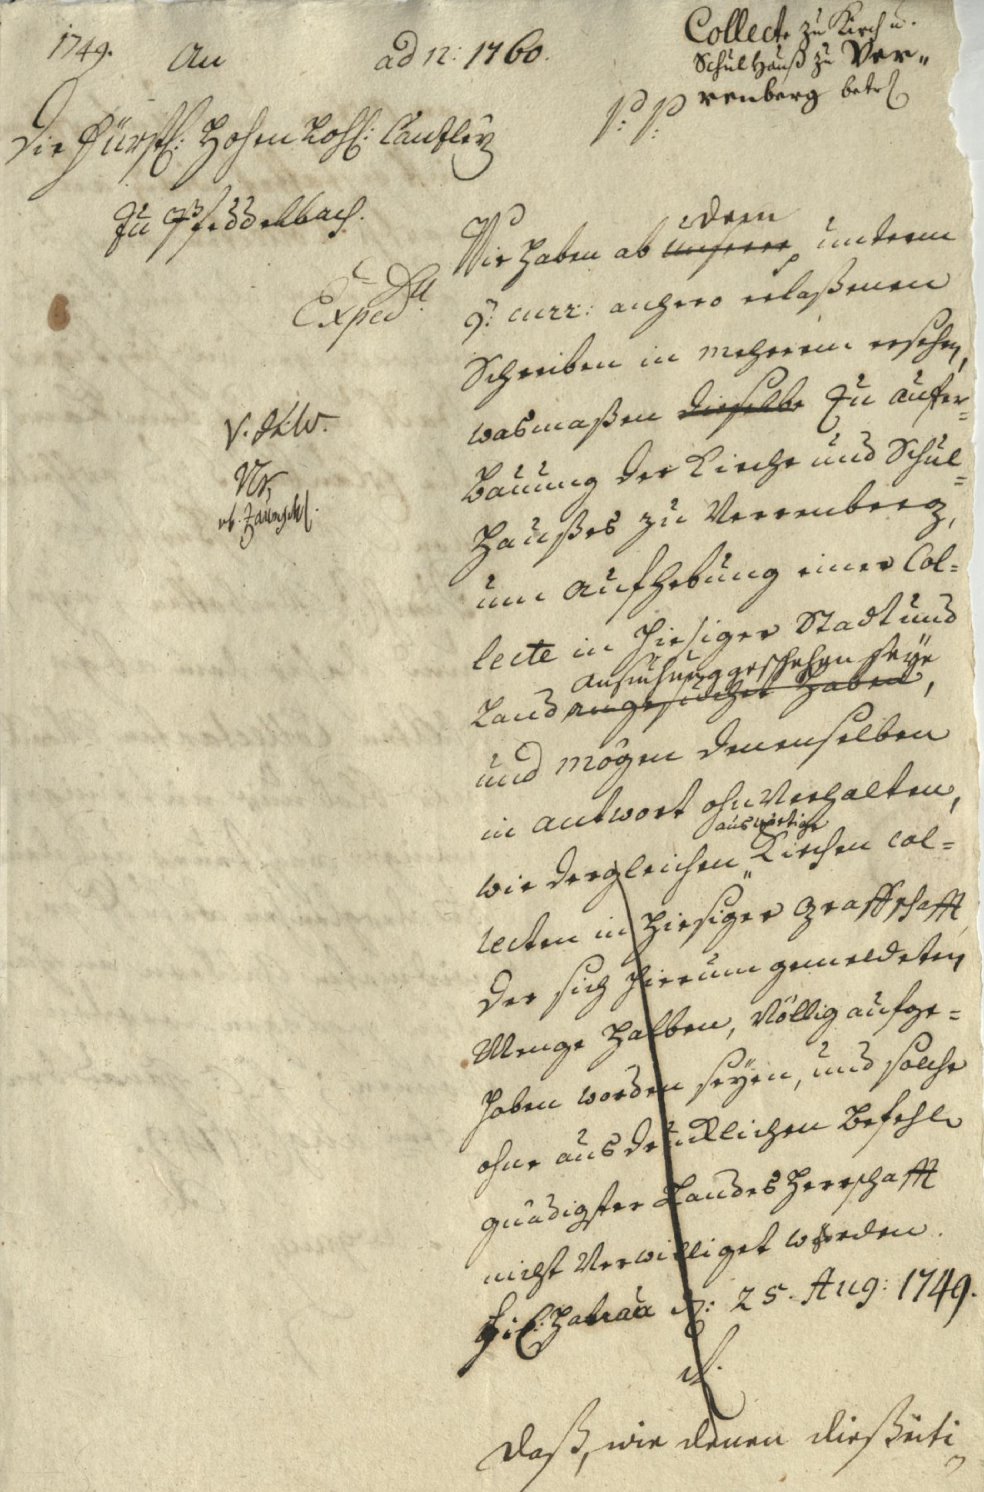 1749.
An
ad n: 1760.
Collecte zu Kirch u.
Schul Hauß zu Ver-
renberg betr.
Die Fürstl: Hohenlohl: Cantzley
zu Pfeddelbach.
P: P:
Exped
V. d. W.
Wir haben ab unserer dem unterm
9: curr: anhero erlaßenen
Schreiben in mehrerem ersehen,
wasmaßen dieselbe zu aufer-
bauung der Kirche und Schul-
Haußes zu Verrenberg,
um aufhebung einer Col-
lecte in hiesiger Stadt und
Ansuchung geschehen seye
Land angesuchet haben,
und mögen denenselben
in antwort ohnverhalten,
auswärtige
wie dergleichen Kirchen col-
lecten in hiesiger Graffschafft
der sich hierum gemeldeten
Menge halben, völlig aufge-
hoben worden seyen, und solche
ohne ausdrücklichen Befehl
gnädigster Landes Herrschafft
nicht verwilliget werden.
Hanau d: 25. Aug: 1749.
Daß, wie denen dießeiti